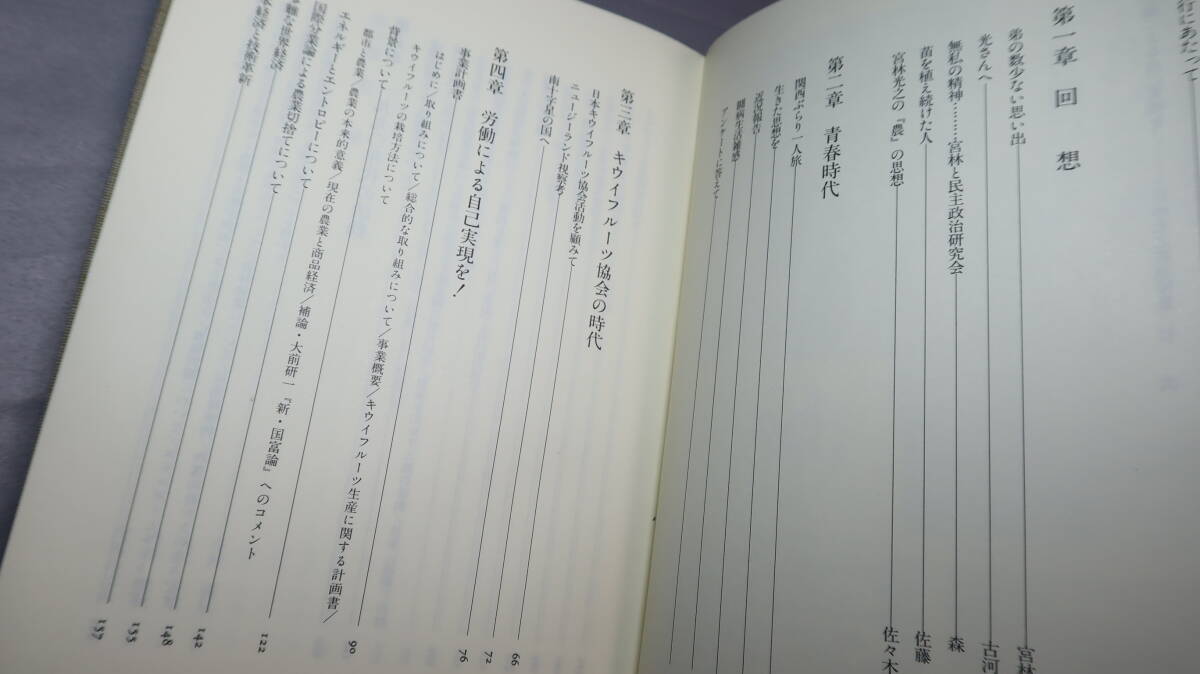 行にあたって
第一章 回 想
弟の数少ない思い出 宮林
光さんへ 古河
無私の精神………宮林と民主政治研究会 森
苗を植え続けた人 佐藤
宮林光之の『農』の思想 佐々木
第二章 青春時代
関西ぶらり一人旅
生きた思想を
近況報告
闘病生活雑感
アンケートに答えて
第三章 キウイフルーツ協会の時代
日本キウイフルーツ協会活動を顧みて 66
ニュージーランド視察考 72
南十字星の国へ 76
第四章 労働による自己実現を！
事業計画書 90
はじめに／取り組みについて／総合的な取り組みについて／事業概要／キウイフルーツ生産に関する計画書／
キウイフルーツの栽培方法について
背景について 122
都市と農業／農業の本来的意義／現在の農業と商品経済／補論・大前研一『新・国富論』へのコメント
エネルギーとエントロピーについて 142
国際分業論による農業切捨てについて 148
難な世界経済 155
本経済と技術革新 157